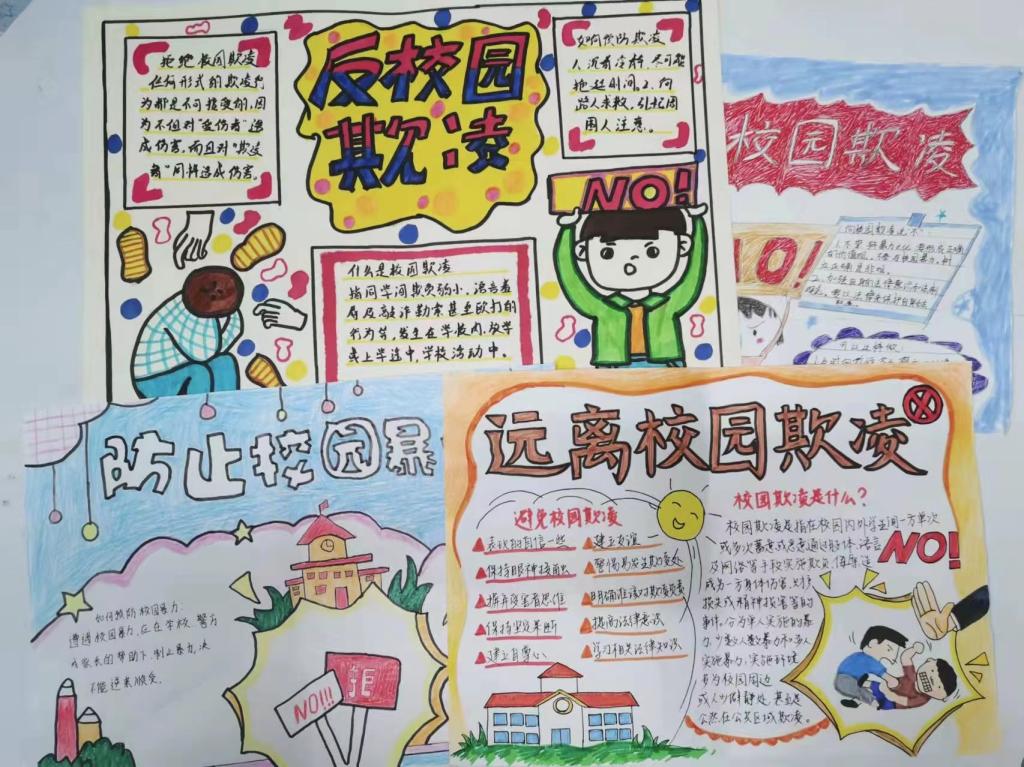 反校园
欺凌
拒绝校园欺凌
任何形式的欺凌行
为都是不可接受的,因
为不但对"受伤者"造
成伤害,而且对"欺凌
者"同样造成伤害。
如何预防欺凌
1、沉着冷静,尽可能
拖延时间。2、向
路人求救,引起周
围人注意。
NO!
什么是校园欺凌
指同学间欺负弱小、语言羞
辱及敲诈勒索甚至殴打的
行为等,发生在学校内、放学
或上学途中、学校活动中。
校园欺凌
NO!
防止校园暴
如何预防校园暴力:
遭遇校园暴力,应在学校、警方
或家长的帮助下,制止暴力,决
不能逆来顺受。
NO!!!
拒
远离校园欺凌
避免校园欺凌
表现的自信一些
保持眼神接触
摒弃受害者思维
保持坚决果断
建立自尊心
建立友谊
警惕易发生欺凌处
明确谁该对欺凌负责
提高法律意识
学习相关法律知识
校园欺凌是什么?
校园欺凌是指在校园内外学生间一方单次
或多次蓄意或恶意通过肢体、语言
及网络等手段实施欺负、侮辱造
成另一方身体伤害、财产
损失或精神损害等的
事件,分为单人实施的暴
力,少数人数暴力和多人
实施暴力,实施环境
多为校园周边
或人少僻静处,甚至是
公然在公共区域欺凌。
NO!